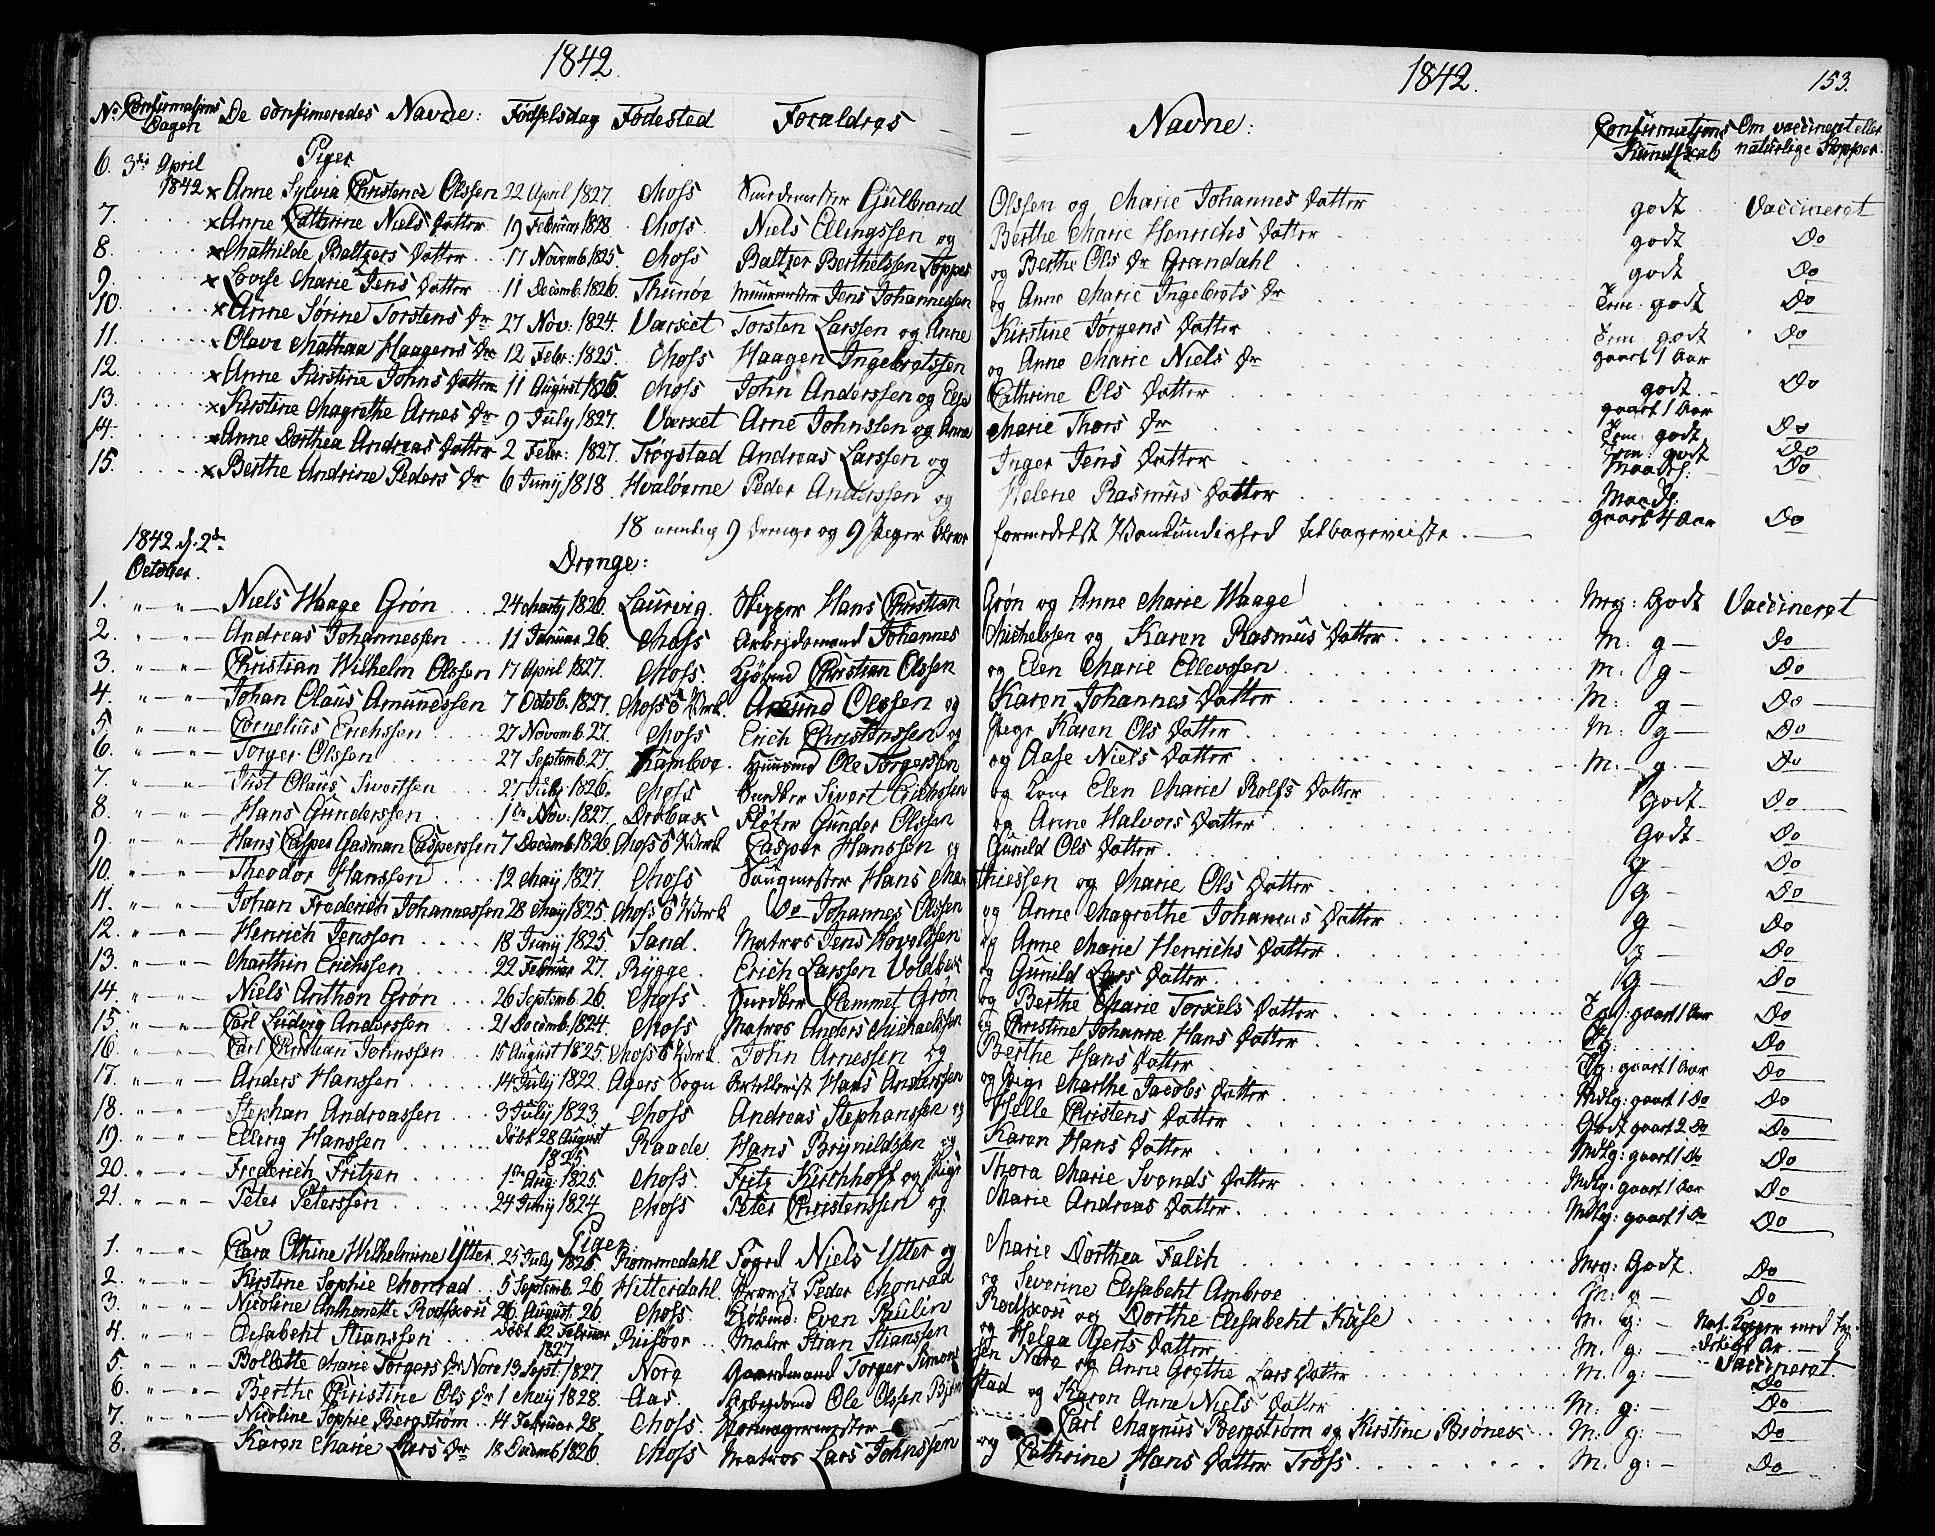 1842. 1842. 153.
No Confirmations Dagen De confirmeredes Navne: Fødselsdag Fødested Forældres Navne: Confirmations Kundskab Om vaccineret eller naturlige Kopper.
Piger
6. 3die April 1842 x Anne Sylvia Christence Olssen 22 April 1827. Moss Gulbrand Olssen og Marie Johannes Datter godt Vaccineret
7. x Anne Cathrine Niels Datter 19 Februar 1828 Moss. Niels Ellingssen og Berthe Marie Henrichs Datter godt Do
8. x Mathilde Baltzers Datter 17 Novemb. 1825 Moss Baltzer Berthelssen Toppes og Berthe Ols Dr Grandahl godt Do
9. x Lovise Marie Jens Datter 11 Decemb. 1826. Thunøe Muurmester Jens Johannessen og Anne Marie Ingebrets Dr Tem. godt Do
10. x Anne Sørine Torstens Dr 27 Nov: 1824. Varset Torsten Larssen og Anne Kirstine Jørgens Datter Tem godt gaaet 1 Aar Do
11. x Olava Mathea Haagens Dr 12 Febr: 1825. Moss Haagen Ingebretssen og Anne Marie Niels Dr godt Do
12. x Anne Kirstine Johns Datter 11 August 1826. Moss John Anderssen og Else Cathrine Ols Datter gaaet 1 Aar Tem: godt Do
13. x Kirstine Magrethe Arnes Dr 9 July 1827. Varset Arne Johnssen og Anne Marie Thors Dr Tem: godt Do
14. x Anne Dorthea Andreas Datter 2 Febr: 1827. Trøgstad Andreas Larssen og Inger Jens Datter Maadl: Do
15. x Berthe Andrine Peders Dr 6 Junij 1818. Hvaløerne Peder Anderssen og Helene Rasmus Datter Maadl: gaaet 4 Aar Do
18 nemlig 9 Drenge og 9 Piger bleve formedelst Vankundighed tilbageviiste.
1842 d: 2den October. Drenge:
1. Niels Waage Grøn 24 Marty 1826. Laurvig. Skipper Hans Christian Grøn og Anne Marie Waage Mrg: Godt Vaccineret
2. Andreas Johannessen 11 Januar 26. Moss Arbejdsmand Johannes Michelssen og Karen Rasmus Datter M: g— Do
3. Christian Wilhelm Olssen 17 April 1827. Moss. Kjøbmd Christian Olssen og Elen Marie Ellevssen M: g— Do
4. Johan Olaus Amundssen 7 Octob. 1827. Moss Værk Amund Olssen og Karen Johannes Datter M: g— Do
5. Cornelius Erichssen 27 Novemb. 27. Moss Erich Christenssen og Pige Karen Ols Datter M: g— Do
6. Torger Olssen 27 Septemb. 27. Kamboe. Huusmd Ole Torgerssen og Aase Niels Datter M: g. Do
7. Just Olaus Sivertsen 27 July 1826. Moss Snedker Sivert Erichssen og Kone Elen Marie Rolfs Datter Godt Do
8. Hans Gunderssen 1ste Nov: 1827. Drøbak Fløter Gunder Olssen og Anne Halvors Datter Godt Do
9. Hans Casper Aasman Casperssen 7 Decemb. 1826. Moss Værk Casper Hanssen og Gunild Ols Datter g— Do
10. Theodor Hanssen 12 May 1827. Moss Saugmester Hans Mathiessen og Marie Ols Datter g— Do
11. Johan Frederich Johannessen 28 May 1825. Moss Værk Do Johannes Olssen og Anne Magrethe Johannes Datter g— Do
12. Henrich Jenssen 18 Junij 1825. Sand. Matros Jens Hovelssen og Anne Marie Henrichs Datter g— Do
13. Marthin Erichssen 22 Februar 27. Rygge. Erich Larssen Voldbæk og Gunild Lars Datter g— Do
14. Niels Anthon Grøn 26 Septemb. 26. Moss. Snedker Clemmet Grøn og Berthe Marie Torkels Datter gaaet 1 Aar Do
15. Carl Ludvig Anderssen 21 Decemb. 1824. Moss. Matros Anders Michaelssen og Christine Johanne Hans Datter Tg: Do
16. Carl Christian Johnssen 15 August 1825. Moss Værk John Arnessen og Berthe Hans Datter Tg: gaaet 1 Aar Do
17. Anders Hanssen 14 July 1822. Agers Sogn Artillerist Hans Anderssen og Pige Marthe Jacobs Datter Mdlg: gaaet 1 Do Do
18. Stephan Andreassen 3 July 1823. Moss Andreas Stephanssen og Helle Christens Datter Godt gaaet 2 Do Do
19. Elling Hanssen døbt 28 August 1825 Raade. Hans Brynildssen og Karen Hans Datter Mdlg: gaaet 1 Do Do
20. Frederich Fritzen 1ste Aug. 1825. Moss. Fritz Kirchhoff og Pige Thora Marie Svends Datter Mdlg: gaaet 1 Aar Do
21. Peter Peterssen 24 Junij 1824. Moss Peter Christenssen og Marie Andreas Datter. Mdlg: gaaet 1 Do Do
Piger
1. Clara Othine Wilhelmine Ytter 25 July 1826. Rommedahl Foged Niels Ytter og Marie Dorthea Falch Mrg: Godt. Do
2. Kirstine Sophie Monrad 5 Septemb. 26. Hitterdahl. Provst Peder Monrad og Severine Elisabeht Ambroe M: g— Do
3. Nicoline Anthonette Rodskou 26. August. 26. Moss. Kjøbmd: Even Paulin Rodskou og Dorthe Elisabeht Kafe M: g: Nat. Kopper med
4. Elisabeht Stianssen døbt 12 Februar 1827 Riisøer. Matros Stian Stianssen og Helga Berts Datter M: g: Vaccineret.
5. Bollette Marie Torgers Dr Nore 13 Sept. 1827. Nore Gaardmand Torger Simonssen Nore og Anne Grethe Lars Datter M: g: Do
6. Berthe Christine Ols Dr 1 May 1828. Aas. Arbejdsmd Ole Olssen Bjørnstad og Karen Anne Niels Datter M: g: Do
7. Nicoline Sophie Bergstrøm 14 Februar 28. Moss. Carl Magnus Bergstrøm og Kirstine Brønes M: g: Do
8. Karen Marie Lars Dr 18 Decemb 1826. Moss Matros Lars Johnssen og Cathrine Hans Datter Tross M: g: Do